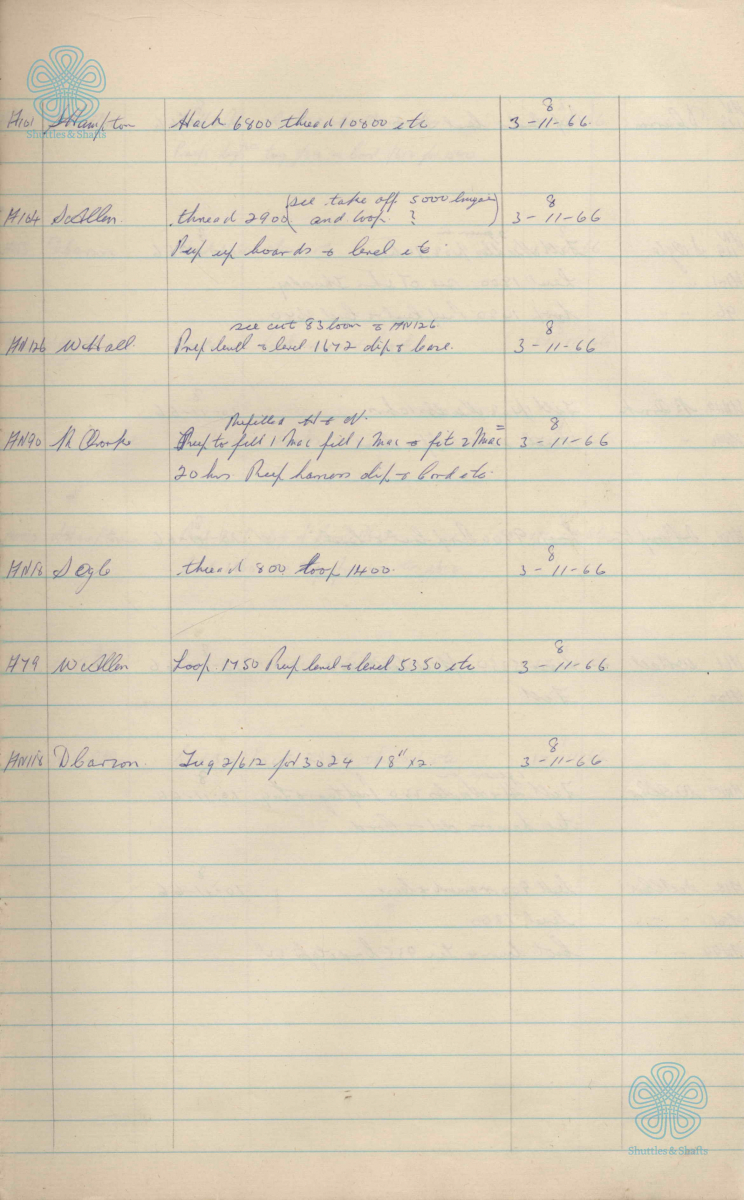 Shuttles & Shafts
8
H101 S Hampton Hack 6800 thread 10800 etc 3-11-66.
(see take off 5000 lingoes 8
H104 S Allen. thread 2900 and loop ?) 3-11-66
Prep up boards & level etc.
see cert 83 loom & HN126 8
HN126 W Hall. Prep level & level 1672 dip & base. 3-11-66
Prefilled 8
HN90 R Prep to fill 1 Mac fill 1 Mac & fit 2 Mac = 3-11-66
20 hrs Prep harness dip & board etc.
8
HN18 S Ogle thread 800 loop 1400. 3-11-66
8
H79 W Allen Loop. 1750 Prep level & level 5350 etc 3-11-66.
8
HN118 D Carson. Lug 2/612 for 3024 18" x2. 3-11-66
Shuttles & Shafts